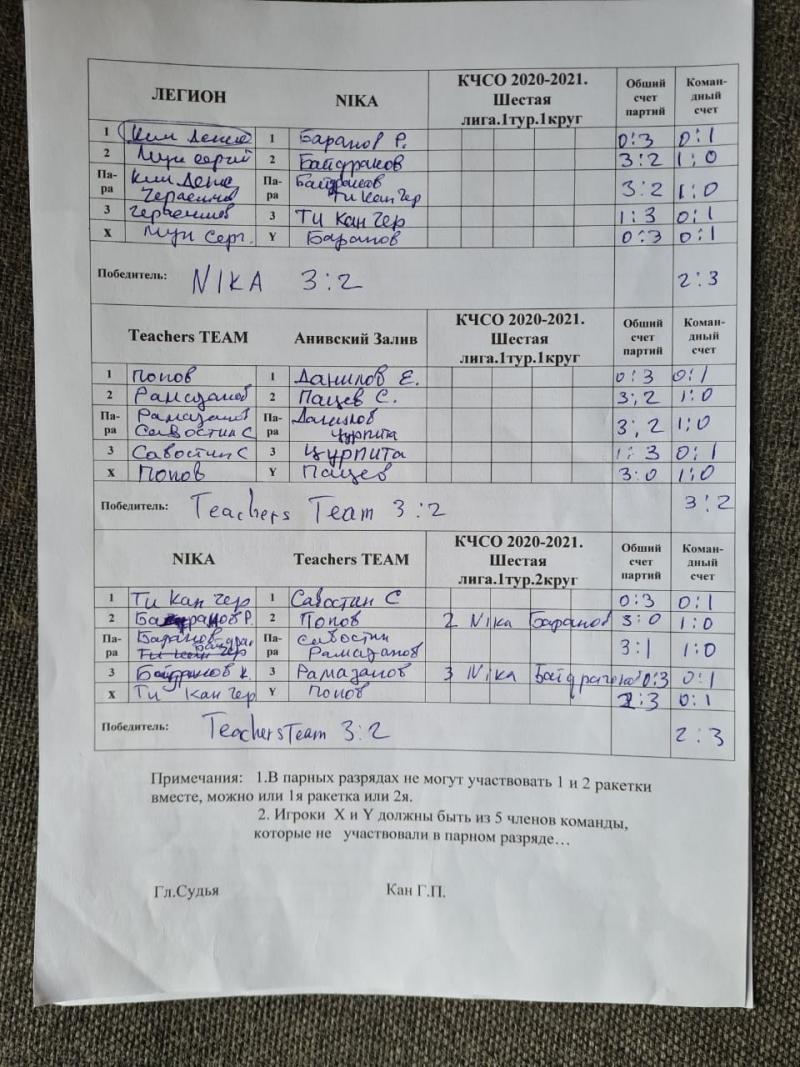 ЛЕГИОН NIKA КЧСО 2020-2021. Шестая лига.1тур.1круг Общий счет партий Коман-дный счет
1 Ким Денис 1 Баранов Р. 0:3 0:1
2 Мун Сергй 2 Байдраков 3:2 1:0
Па-ра Ким Денис Па-ра Байдраков Ти Кан Чер 3:2 1:0
3 3 Ти Кан Чер 1:3 0:1
X Мун Серг. Y Баранов 0:3 0:1
Победитель: NIKA 3:2 2:3
Teachers TEAM Анивский Залив КЧСО 2020-2021. Шестая лига.1тур.1круг Общий счет партий Коман-дный счет
1 Попов 1 Данилов Е. 0:3 0:1
2 Рамазанов 2 Пацев С. 3:2 1:0
Па-ра Рамазанов Савостин С Па-ра Данилов Цурпита 3:2 1:0
3 Савостин С 3 Цурпита 1:3 0:1
X Попов Y Пацев 3:0 1:0
Победитель: Teachers Team 3:2 3:2
NIKA Teachers TEAM КЧСО 2020-2021. Шестая лига.1тур.2круг Общий счет партий Коман-дный счет
1 Ти Кан Чер 1 Савостин С 0:3 0:1
2 Баранов Р. 2 Попов 2 Nika Баранов 3:0 1:0
Па-ра Баранов Па-ра Савостин Рамазанов 3:1 1:0
3 Байдраков К. 3 Рамазанов 3 Nika 0:3 0:1
X Ти Кан Чер Y Попов 2:3 0:1
Победитель: Teachers Team 3:2 2:3
Примечания: 1.В парных разрядах не могут участвовать 1 и 2 ракетки
вместе, можно или 1я ракетка или 2я.
2. Игроки X и Y должны быть из 5 членов команды,
которые не участвовали в парном разряде…
Гл.Судья Кан Г.П.